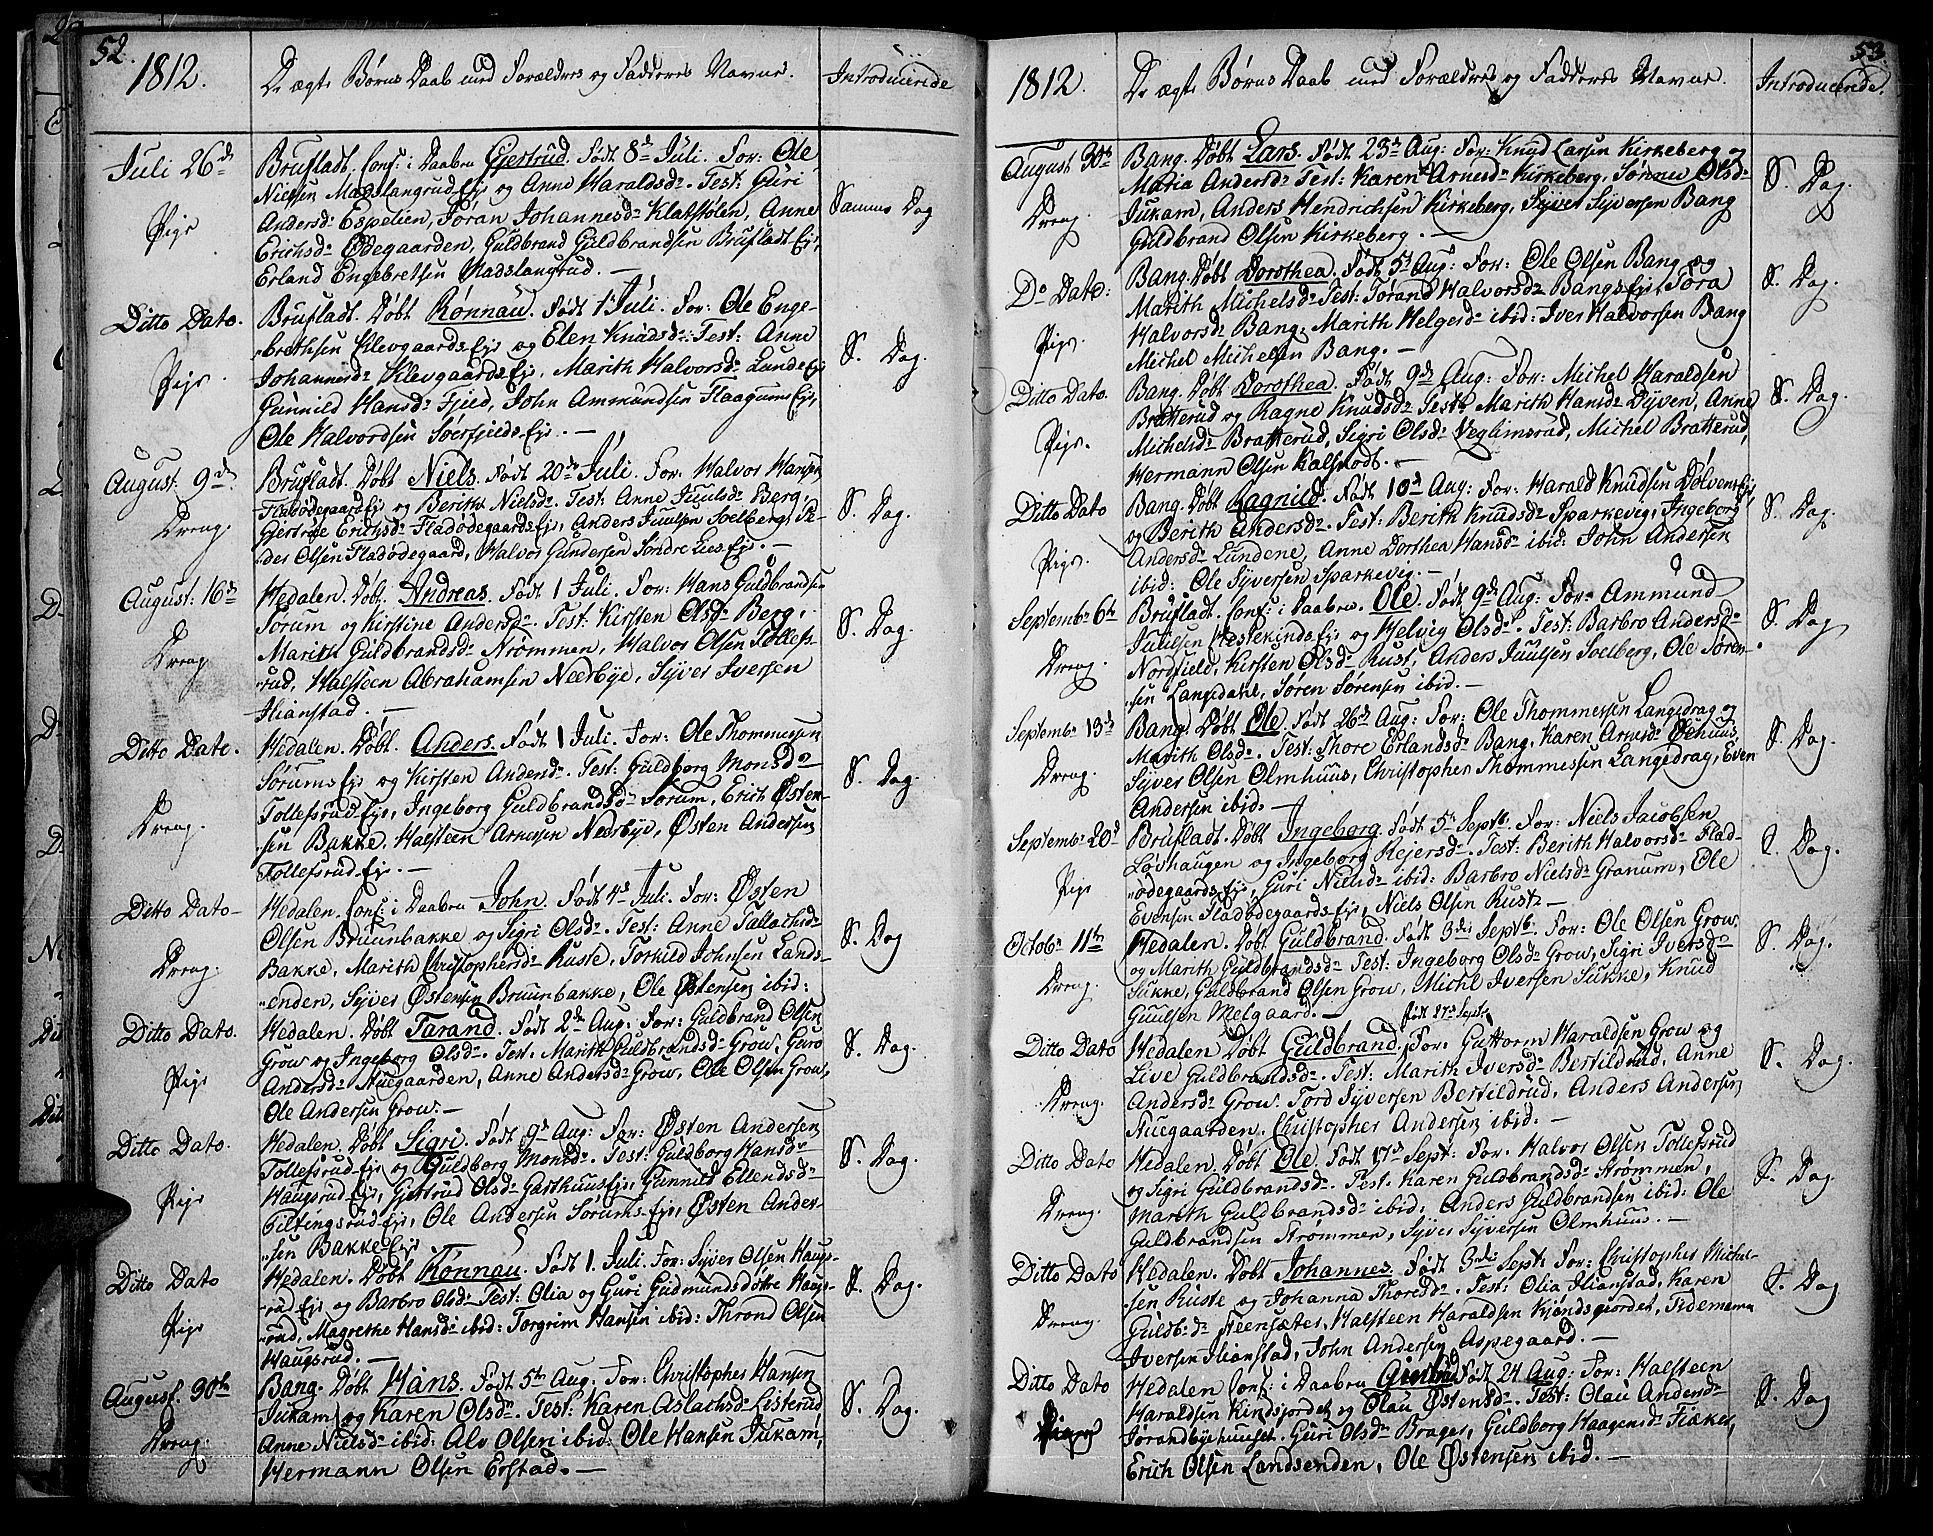 52.
1812.
De ægte Børns Daab med Forældres og Fadderes Navne.
Introducerede
Juli 26de
Pige
Brufladt. Conf: i Daaben Gjertrud. Født 8de Juli. For: Ole
Nielsen Madslangrud Eje og Anne Haraldsdr. Test: Guri
Andersdr Espelien, Jøran Johannesdr Klatstølen, Anne
Erichsdr Ødegaarden, Guldbrand Guldbrandsen Brufladt Eje,
Erland Engebretsen Madslangrud. —
Samme Dag
Ditto Dato.
Pige.
Brufladt. Døbt Rønnau. Født 1 Juli. For: Ole Enge-
brethsen Klevgaards Eje og Elen Knudsdr. Test: Anne
Johannesdr Klevgaards Eje, Marith Halvorsdr Lunde Eje
Gunnild Hansdr Fjeld, John Ammundsen Haagums Eje,
Ole Halvordsen Søerfjelds Eje. —
S. Dag.
August 9de
Dreng.
Brufladt. Døbt Niels. Født 20de Juli. For. Halvor Hansen
Fladødegaard Eje og Berith Nielsdr. Test: Anne Juulsdr Berg,
Gjertrue Erichsdr Fladødegaards Eje, Anders Juulsen Soelberg, Pe-
der Olsen Fladødegaard, Halvor Gundersen Søndre Lies Eje. —
S. Dag.
August: 16de
Dreng
Hedalen. Døbt. Andreas. Født 1 Juli. For: Hans Guldbrandsen
Sorum og Kirstine Andersdr. Test: Kirsten Olsdr Berg,
Marith Guldbrandsdr Strømmen, Halvor Olsen Tollefs-
rud, Halsteen Abrahamsen Nedrbye, Syver Iversen
Ilianstad. —
S. Dag.
Ditto Dato.
Dreng.
Hedalen. Døbt. Anders. Født 1 Juli. For: Ole Thommessen
Sørums Eje og Kirsten Andersdr. Test: Guldborg Monsdr
Tollefsrud Eje, Ingeborg Guldbrandsdr Sorum, Erich Østen-
sen Bakke, Halsteen Arnesen Nedrbye, Østen Andersen
Tollefsrud Eje. —
S. Dag.
Ditto Dato-
Dreng.
Hedalen. Conf: i Daaben John. Født 4de Juli. For: Østen
Olsen Bruunbakke og Sigri Olsdr. Test: Anne Tallachsdr
Bakke, Marith Christophersdr Ruste, Torkild Johnsen Lands-
enden, Syver Østensen Bruunbakke, Ole Østensen ibid:
S. Dag
Ditto Dato.
Pige
Hedalen. Døbt Tarand. Født 2de Aug: For: Guldbrand Olsen
Grow og Ingeborg Olsdr. Test. Marith Guldbrandsdr Grow, Guro
Andersdr Stuegaarden, Anne Andersdr Grow, Ole Olsen Grow,
Ole Andersen Grow. —
S. Dag.
Ditto Dato.
Pige
Hedalen. Døbt Sigri. Født 9de Aug: For: Østen Andersen
Tollefsrud Eje og Guldborg Monsdr. Test: Guldborg Hansdr
Haugsrud Eje, Gertrud Olsdr Garthuus Eje, Gunnild Ellendsdr
Tiltingsrud Eje, Ole Andersen Sørums Eje, Østen Ander-
sen Bakke Eje
S. Dag.
Ditto Dato
Pige
Hedalen. Døbt Rønnau. Født 1. Juli. For: Syver Olsen Haugs-
rud Eje og Barbro Olsdr. Test: Olia og Guri Gudmundsdøttre Haugs-
rud, Magrethe Hansdr ibid: Torgrim Hansen ibid: Thrond Olsen
Haugsrud. —
S. Dag.
August. 30te
Dreng.
Bang. Døbt Hans. Født 5te Aug: For: Christopher Hansen
Jukam og Karen Olsdr. Test: Karen Aslachsdr Listerud
Anne Nielsdr ibid: Alv Olsen ibid: Ole Hansen Jukam,
Hermann Olsen Erstad. —
S. Dag.
53.
1812.
De ægte Børns Daab med Forældres og Fadderes Navne.
Introducerede.
August 30te
Dreng.
Bang. Døbt Lars. Født 23de Aug: For: Knud Larsen Kirkeberg og
Maria Andersdr Test: Karen Arnesdr Kirkeberg, Sønnu Olsdr
Jukam, Anders Hendrichsen Kirkeberg, Syver Syversen Bang
Guldbrand Olsen Kirkeberg. —
S. Dag.
Do Dato:
Pige.
Bang. Døbt Dorothea. Født 5te Aug: For: Ole Olsen Bang og
Marith Michelsdr Test: Tørand Halvorsdr Bangs Eje, Tøra
Halvorsdr Bang, Marith Helgesdr ibid: Iver Halvorsen Bang
Michel Michelsen Bang. —
S. Dag.
Ditto Dato.
Pige.
Bang. Døbt Dorothea. Født 9de Aug: For: Michel Haraldsen
Bratterud og Ragne Knudsdr Test: Marith Hansdr Dyven, Anne
Michelsdr Bratterud, Sigri Olsdr Veglimsrud, Michel Bratterud,
Hermann Olsen Kalstadt. —
S. Dag.
Ditto Dato
Pige.
Bang. Døbt Ragnild. Født 10de Aug: For: Harald Knudsen Dølvens Eje
og Berith Andersdr. Test: Berith Knudsdr Sparkevig, Ingeborg
Andersdr Lundene, Anne Dorthea Hansdr ibid: John Andersen
ibid: Ole Syversen Sparkevig. —
S. Dag.
Septembr 6te
Dreng.
Brufladt. Conf: i Daaben. Ole. Født 9de Aug: For: Ammund
Julsen Hestekinds Eje og Helvig Olsdr. Test: Barbro Andersdr
Nordfield, Kirsten Olsdr Rust, Anders Juulsen Soelberg, Ole Søren-
sen Langedahl, Søren Sørensen ibid. —
S. Dag
Septembr 13de
Dreng.
Bang. Døbt Ole. Født 26de Aug: For: Ole Thommessen Langedrag og
Marith Olsdr. Test: Thore Erlandsdr Bang, Karen Arnesdr Øehuus,
Syver Olsen Olmhuus, Christopher Thommessen Langedrag, Even
Andersen ibid. —
S. Dag.
Septembr 20de
Pige
Brufladt. Døbt Ingeborg. Født 5te Septbr. For: Niels Jacobsen
Løvhaugen og Ingeborg Rejersdr. Test: Berith Halvorsdr Flad-
ødegaards Eje, Guri Nielsdr ibid: Barbro Nielsdr Granum, Ole
Evensen Fladødegaards Eje, Niels Olsen Rust. —
S. Dag.
Octobr 11te
Dreng.
Hedalen. Døbt Guldbrand. Født 3die Septb. For: Ole Olsen Grow
og Marith Guldbrandsdr Test: Ingeborg Olsdr Grow, Sigri Iversdr
Sukke, Guldbrand Olsen Grow, Michel Iversen Sukke, Knud
Guulsen Melgaard. —
S. Dag.
Ditto Dato
Dreng.
født 27de Septb
Hedalen Døbt Guldbrand. For: Guttorm Haraldsen Grow og
Live Guldbrandsdr. Test: Marith Iversdr Bertildrud, Anne
Andersdr Grow. Tord Syversen Bertildrud, Anders Andersen
Stuegaarden. Christopher Andersen ibid. —
S. Dag.
Ditto Dato
Dreng.
Hedalen. Døbt Ole. Født 17de Sept: For. Halvor Olsen Tollefsrud
og Sigri Guldbrandsdr. Test. Karen Guldbrandsdr Strømmen,
Marith Guldbrandsdr ibid: Anders Guldbrandsen ibid: Ole
Guldbrandsen Strømmen, Syver Syversen Olmhuus. —
S. Dag.
Ditto Dato
Dreng.
Hedalen. Døbt Johannes. Født 3die Septb: For: Christopher Michel-
sen Ruste og Johanna Thoresdr. Test: Olia Ilianstad, Karen
Guldbdr Steensæter, Halsteen Haraldsen Kjøndsjordet, Tidemann
Iversen Ilianstad, John Andersen Aspegaard. —
S. Dag
Ditto Dato
Hedalen Conf: i Daaben Giertrud Født 24 Aug: For: Halsteen
Haraldsen Kindsjordet og Olau Østensdr. Test: Olau Andersdr
Jørandbyehuuset. Guri Olsdr Brager, Guldborg Haagensdr Fiæker,
Erich Olsen Landsenden, Ole Østensen ibid. —
S. Dag